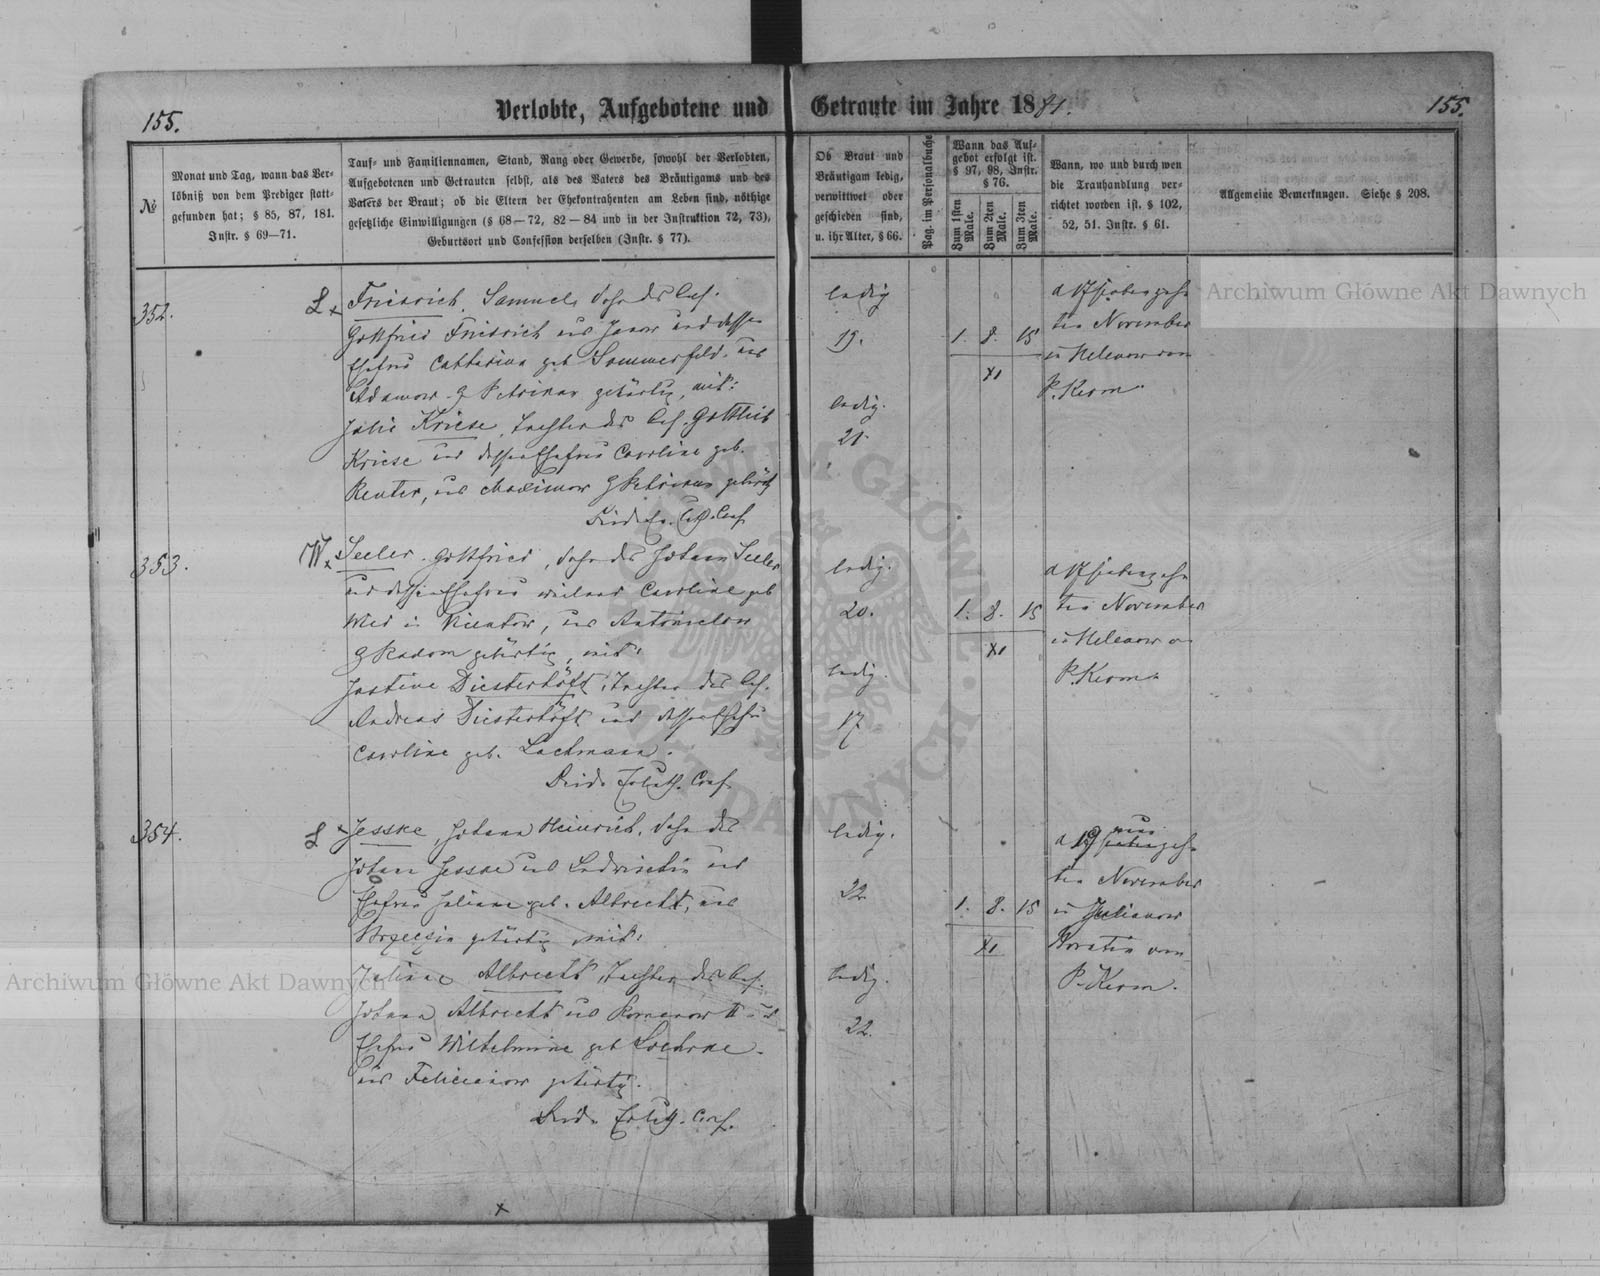 155.
Verlobte, Aufgebotene und Getraute im Jahre 1881.
155.
№
Monat und Tag, wann das Ver-
löbniß von dem Prediger statt-
gefunden hat; § 85, 87, 181.
Instr. § 69—71.
Tauf- und Familiennamen, Stand, Rang oder Gewerbe, sowohl der Verlobten,
Aufgebotenen und Getrauten selbst, als des Vaters des Bräutigams und des
Vaters der Braut; ob die Eltern der Ehekontrahenten am Leben sind, nöthige
gesetzliche Einwilligungen (§ 68—72, 82—84 und in der Instruktion 72, 73),
Geburtsort und Confession derselben (Instr. § 77).
Ob Braut und
Bräutigam ledig,
verwittwet oder
geschieden sind,
u. ihr Alter, § 66.
Pag. im Personalbuche
Wann das Auf-
gebot erfolgt ist.
§ 97, 98, Instr.
§ 76.
Zum 1sten Male.
Zum 2ten Male.
Zum 3ten Male.
Wann, wo und durch wen
die Trauhandlung ver-
richtet worden ist. § 102,
52, 51. Instr. § 61.
Allgemeine Bemerkungen. Siehe § 208.
352.
L x
Friedrich, Samuel, Sohn des Bes.
Gottfried Friedrich aus Janow und dessen
Ehefrau Catharina geb. Sommerfeld, aus
Adamow g Petrikau gebürtig, mit:
Julie Kriese, Tochter des Bes. Gottlieb
Kriese und dessen Ehefrau Caroline geb.
Reuter, aus Maximow g Petrikau gebürtig
Beide Ev. Luth. Conf.
ledig
19.
ledig.
21.
1. 8. 15
XI
d 17 siebenzehn
ten November
in Helenow von
P. Kerm.
353.
W x
Seeler, Gottfried, Sohn des Johann Seeler
und dessen Ehefrau weiland Caroline geb
in
, aus Antonielow
g Radom gebürtig, mit:
Justine Diesterhöft, Tochter des Bes.
Andreas Diesterhöft und dessen Ehefrau
Caroline geb. Lachmann.
Beide Ev luth. Conf.
ledig.
20.
ledig.
17
1. 8. 15
XI
d 17 siebenzehn
ten November
in Helenow v
P. Kerm.
354.
L x
Jesske, Johann Heinrich, Sohn des
Johann Jesske aus und
Ehefrau Juliane geb. Albrecht, aus
gebürtig mit:
Juliane Albrecht, Tochter des Bes.
Johann Albrecht aus Romanow II und
Ehefrau Wilhelmine geb
aus Felicianow gebürtig.
Beide Ev luth. Conf.
ledig.
22.
ledig.
22.
1. 8. 15
XI
d 19 neunzehn
ten November
in Julianow
von
P. Kerm.
x
Archiwum Główne Akt Dawnych
Archiwum Główne Akt Dawnych